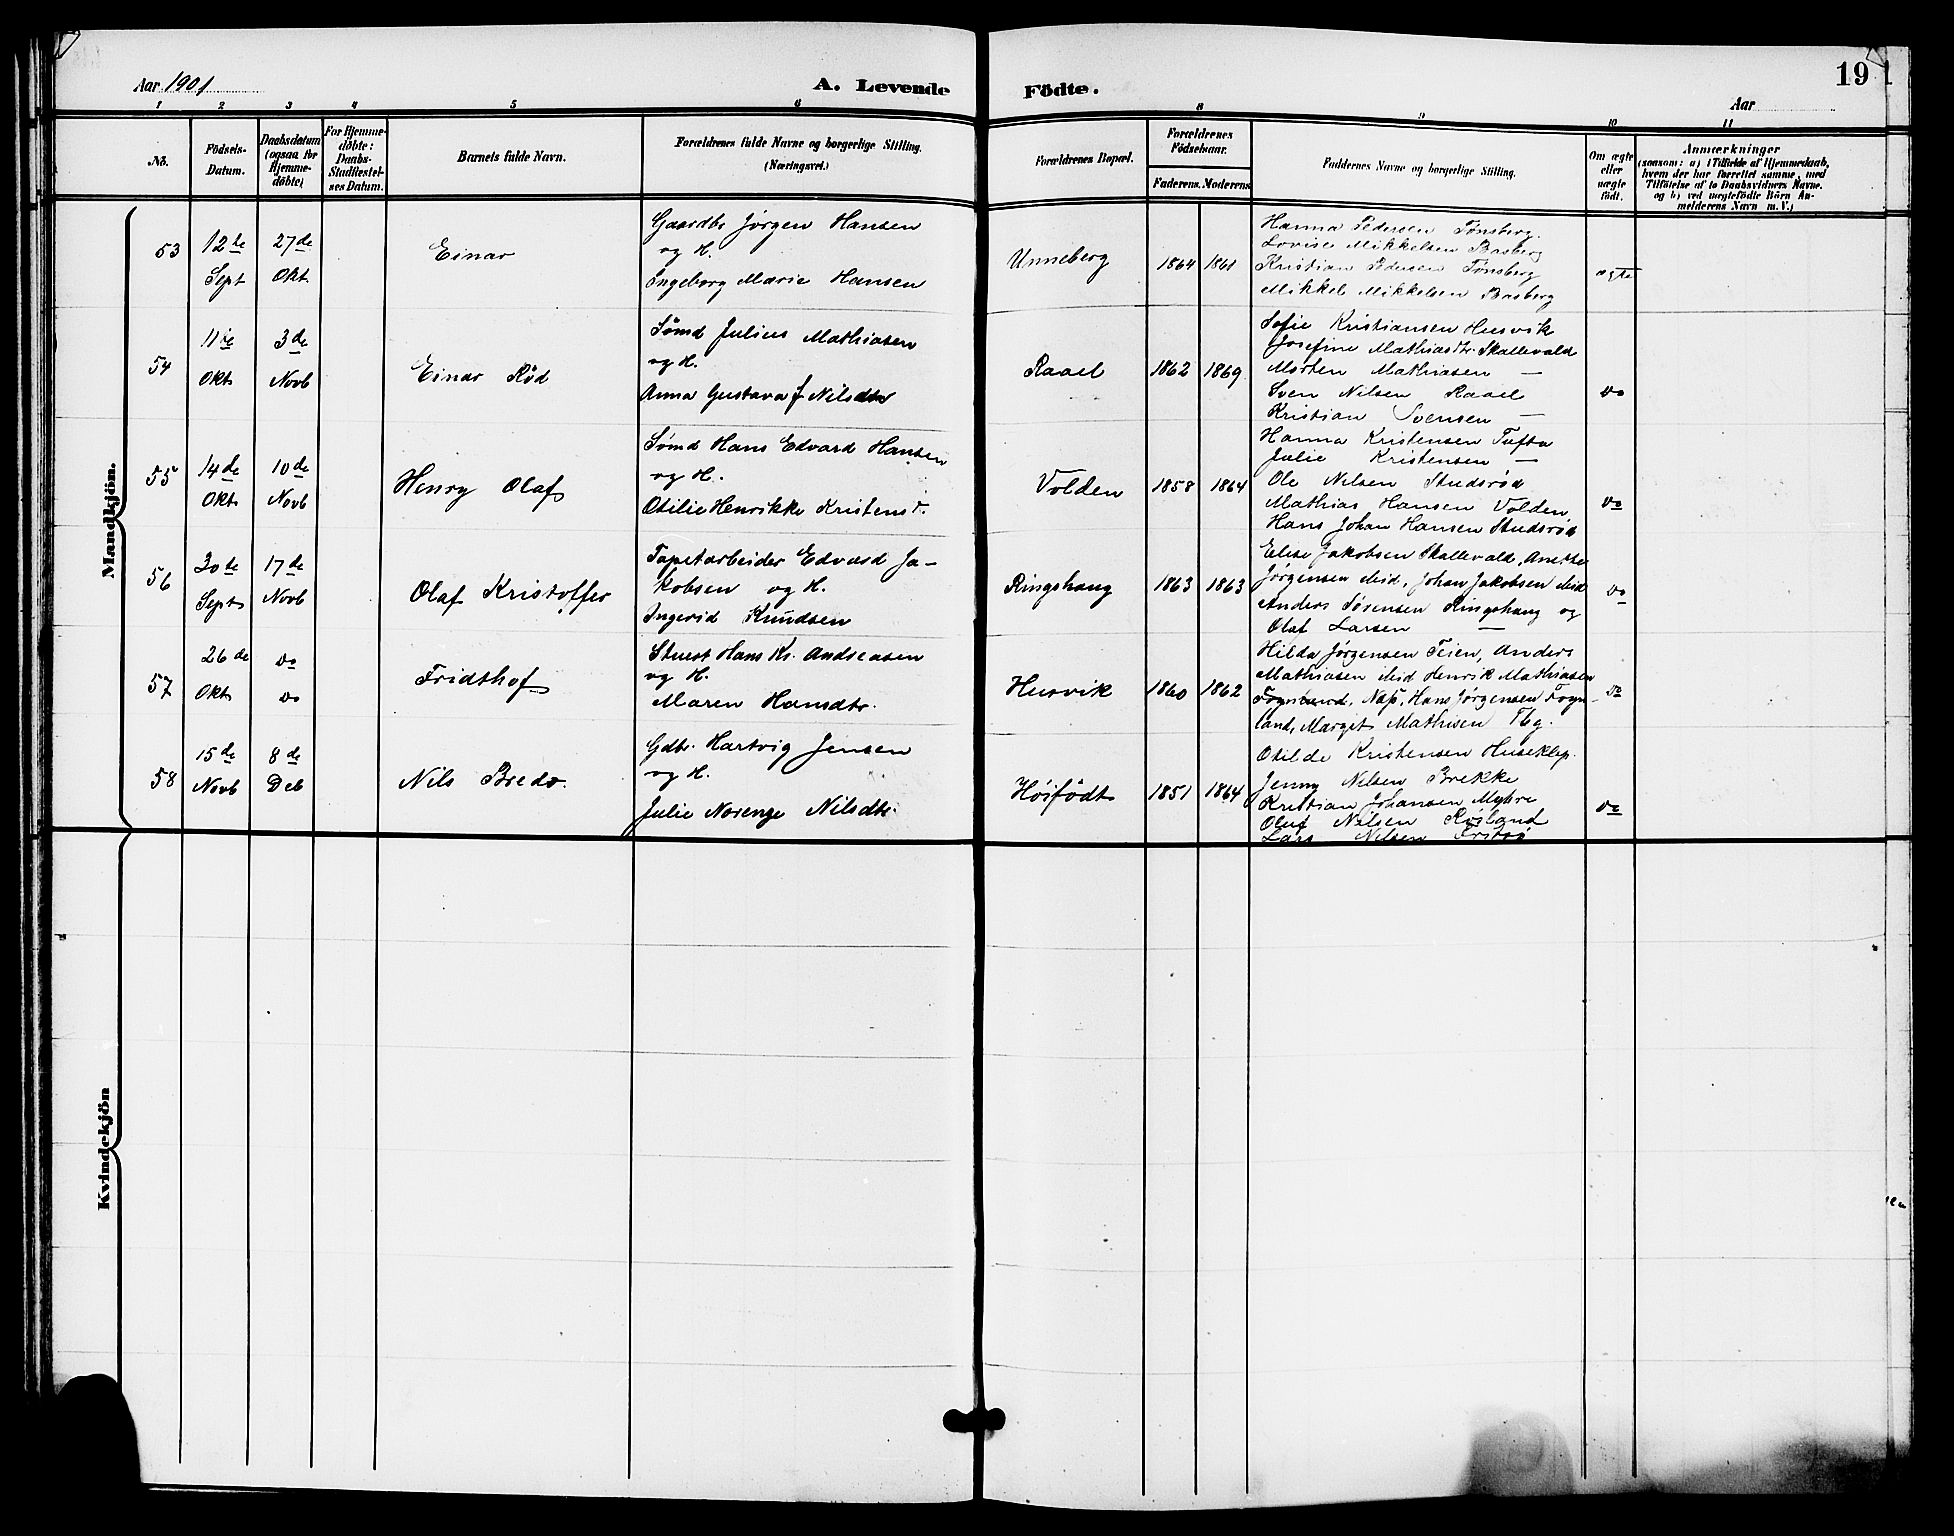 Aar 1901
A. Levende
Födte.
19
Aar
1 2 3 4 5 6 8 9 10 11
No.
Födsels-
Datum.
Daabsdatum
(ogsaa for
Hjemme-
döbte)
For Hjemme-
döbte:
Daabs-
Stadfæstel-
ses Datum.
Barnets fulde Navn.
Forældrenes fulde Navne og borgerlige Stilling.
(Næringsvei.)
Forældrenes Bopæl.
Forældrenes
Födselsaar.
Faderens. Moderens
Faddernes Navne og borgerlige Stilling.
Om ægte
eller
uægte
födt.
Anmærkninger
(saasom: a) i Tilfælde af Hjemmedaab,
hvem der har forrettet samme, med
Tilföielse af to Daabsvidners Navne.
og b) ved uægtefödte Börn An-
melderens Navn m. V.)
Mandkjön.
53
12te
Sept
27de
Okt
Einar
Gaardbr Jørgen Hansen
og H.
Ingeborg Marie Hansen
Unneberg
1864 1861
Hanna Pedersen Tønsberg.
Lovise Mikkelsen Basberg
Kristian Pedersen Tønsberg
Mikkel Mikkelsen Basberg
ægte
54
11te
Okt
3de
Novb
Einar Röd
Sömd Julius Mathiasen
og H.
Anna Gustava J Nilsdtr
Raael
1862 1869
Sofie Kristiansen Husvik
Josefine Mathiasdtr. Skallevald
Morten Mathiasen —
Sven Nilsen Raael
Kristian Svensen —
do
55
14de
Okt
10de
Novb
Henry Olaf
Sømd Hans Edvard Hansen
og H.
Otilie Henrikke Kristensd.
Volden
1858 1864
Hanna Kristensen Tufta
Julie Kristensen —
Ole Nilsen Studsrød
Mathias Hansen Volden
Hans Johan Hansen Studsrød
do
56
30te
Sept
17de
Novb
Olaf Kristoffer
Tapetarbeider Edvard Ja-
kobsen og H.
Ingerid Knudsen
Ringshaug
1863 1863
Elise Jakobsen Skallevald, Anette
Jørgensen Meid, Johan Jakobsen Meid
Anders Sørensen Ringshaug og
Olaf Larsen —
do
57
26de
Okt
do
do
Fridthof
Stuert Hans Kr. Andreasen
og H.
Maren Hansdtr.
Husvik
1860 1862
Hilda Jørgensen Teien, Anders
Mathiasen Meid Henrik Mathiasen
Nap, Hans Jørgensen Fogn-
land, Marget Mathisen Tbg.
do
58
15de
Novb
8de
Deb
Nils Bredo.
Gdbr. Hartvig Jensen
og H.
Julie Norenge Nilsdtr.
Höifödt
1851 1864
Otilde Kristensen Huseklep.
Jenny Nilsen Brekke
Kristian Johansen Myhre
Oluf Nilsen Röiland
Lars Nilsen
do
Kvindekjön